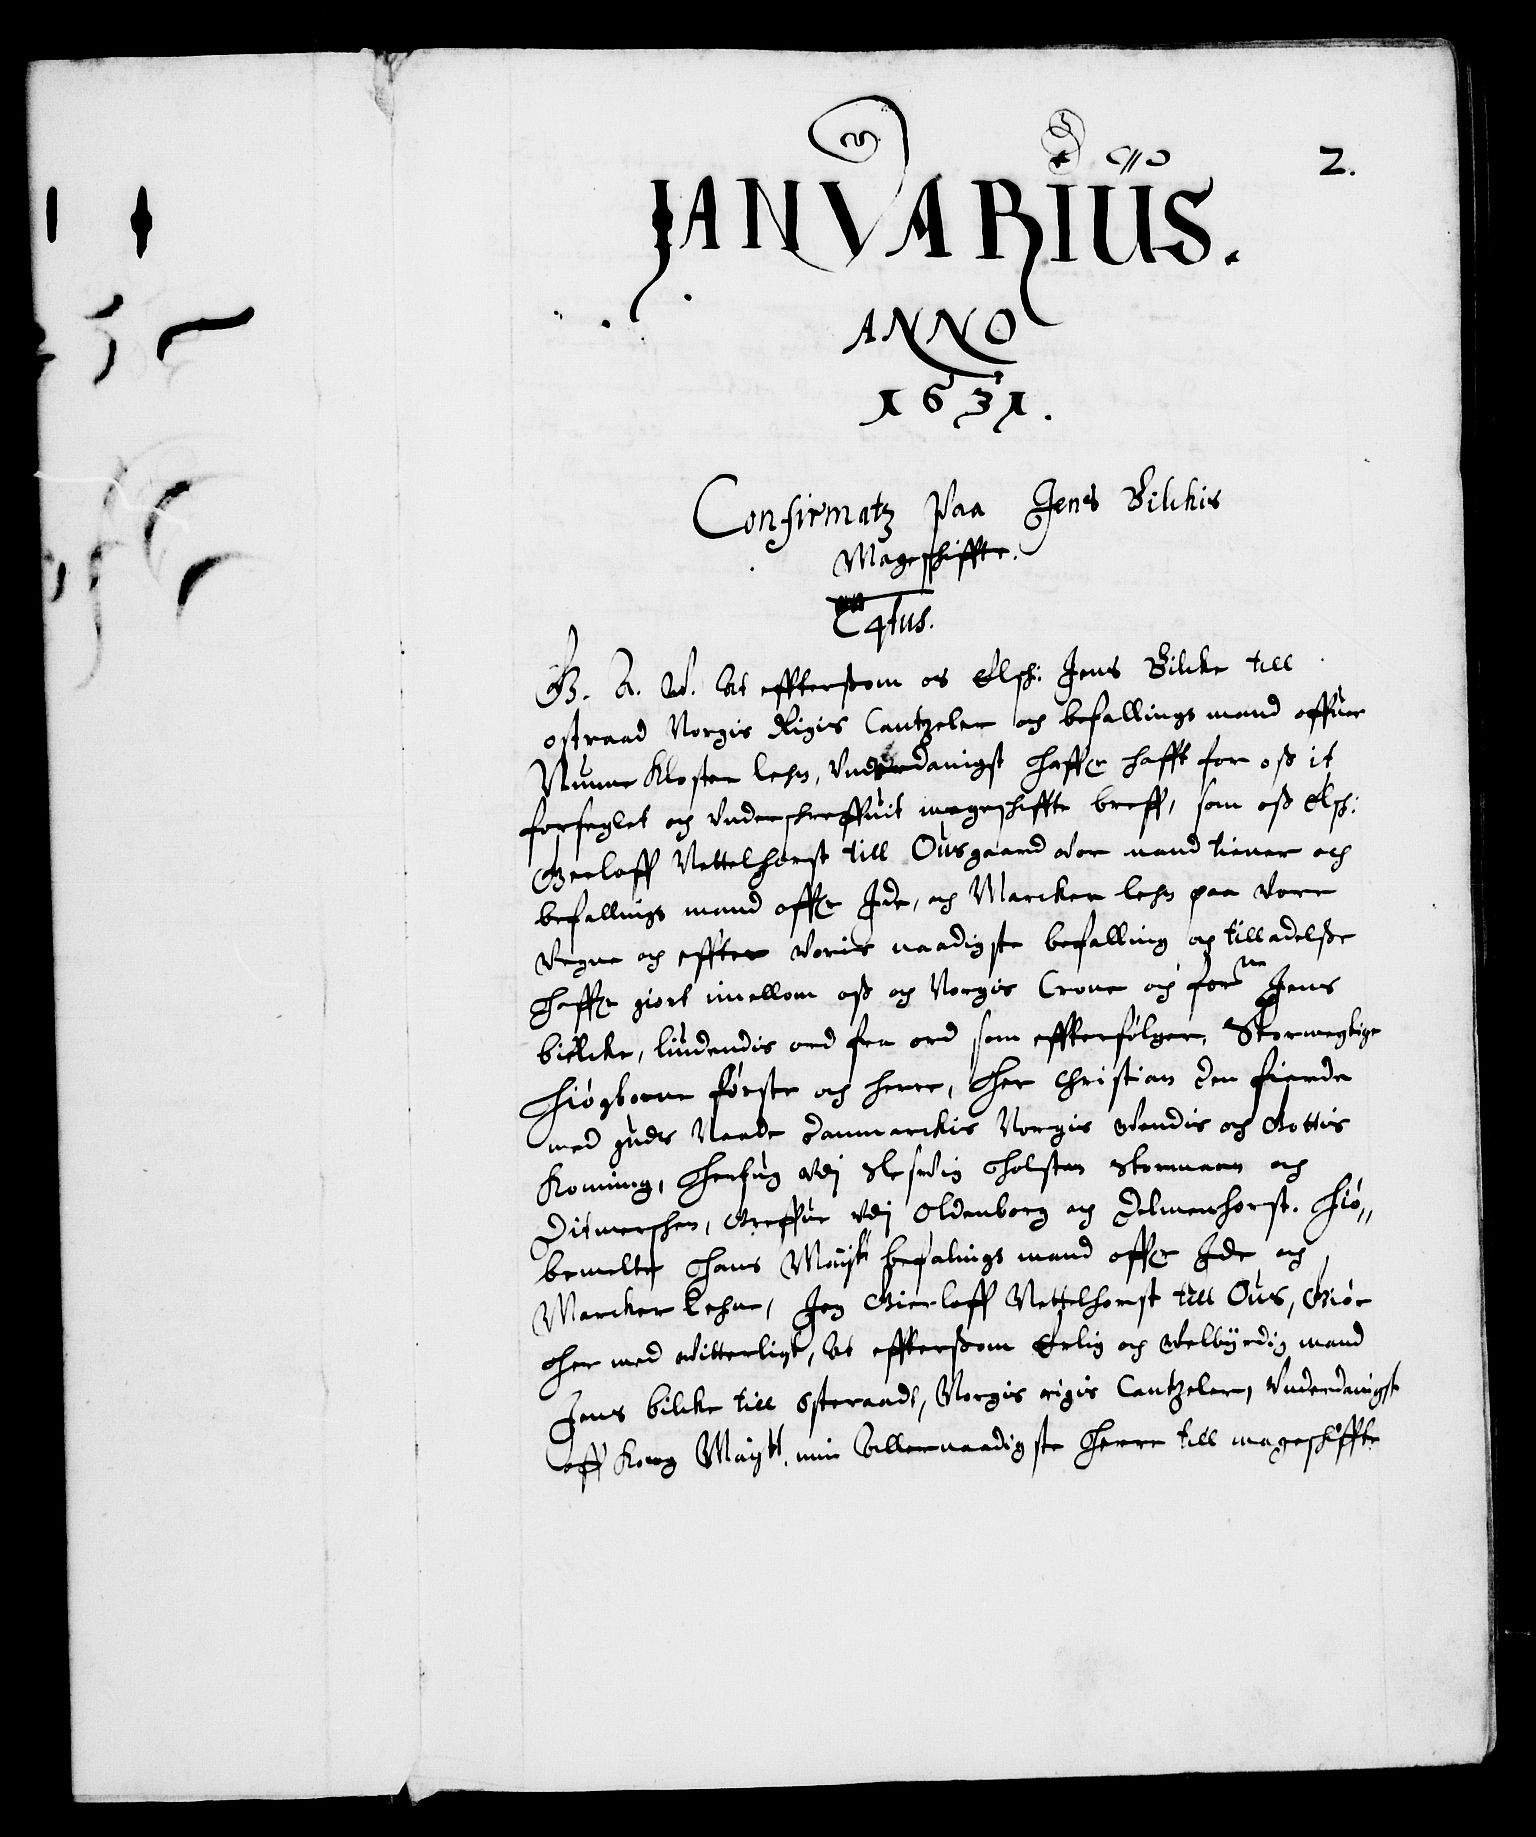 2.
JANVARIUS.
ANNO
1631.
Confirmatz Paa Jens Bilckis
Mageschiffte.
C4tus.
G. A. W. At effterßom os Elsch: Jens Bilcke till
ostraad Norgis Rigis Cantzeler och befallings mand offuer
Nunne Closter lehn, Underdanigst haffr hafft for oß it
forseglet och Underschreffuit mageschiffte breff, som oß Elsch:
Gerloff Nettelhorst till Ousgaard vor mand tiener och
befallings mand offr Ide, och Marcker lehn paa Vore
Vegne och effter Voris naadigste befalling och tilladelße
haffr giort imellom oß och Norgis Crone och forne Jens
bielcke, liudendis ord fra ord som effterfølger, Stormegtige
Høgborne første och herre, Her Christian den fierde
med guds Naade Danmarckis Norgis Vendis och Gottis
Konning, Hertug Udj Slesvig Holsten Stormarn och
Ditmerschen, Greffue Udj Oldenborg och Delmenhorst. Høy
bemelte Hans Mayts befalings mand offr Ide och
Marcker Lehne, Jeg Gierloff Nettelhorst till Ous, Giør
Her med Vitterligt, At effterßom Erlig och Velbyrdig mand
Jens bilcke till Osteraadt, Norgis rigis Cantzeler, Underdanigst
aff Kong Mayt. min Allernaadigste Herre till mageschiffte